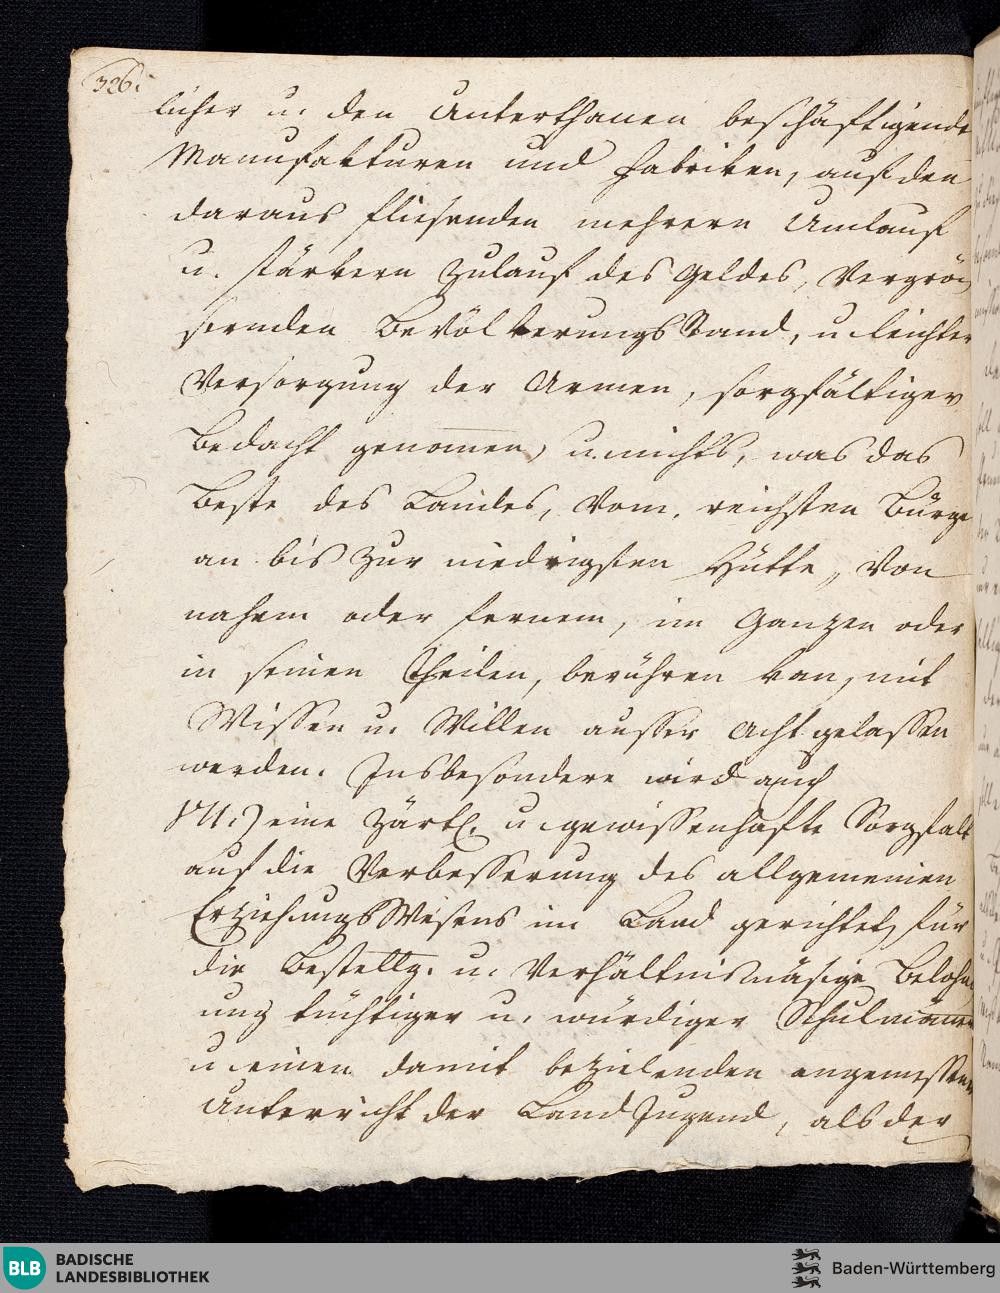 326.
licher u. den Unterthanen beschäftigende
Manufakturen und Fabriken, auf den
daraus fliesenden mehrern Umlauf
u. stärkern Zulauf des Geldes, Vergrö
sernden BevölkerungsStand, u. leichter
Versorgung der Armen, sorgfältiger
Bedacht genomen, u. nichts, was das
Beste des Landes, Vom reichsten Bürge
an bis zur niedrigsten Hütte, Von
nahem oder fernem, im Ganzen oder
in seinen Theilen, berühren kan, mit
Wissen u. Willen ausser Acht gelassen
werden. Insbesondere wird auch
VII.) eine zärtl. u. gewissenhafte Sorgfalt
auf die Verbesserung des allgemeinen
ErziehungsWesens im Land gerichtet, für
die Bestellg. u. Verhältnismäsige Beloh
ung tüchtiger u. würdiger Schulmänner
u. einen damit bezielenden angemessenen
Unterricht der LandJugend, als der
BLB BADISCHE
LANDESBIBLIOTHEK
Baden-Württemberg